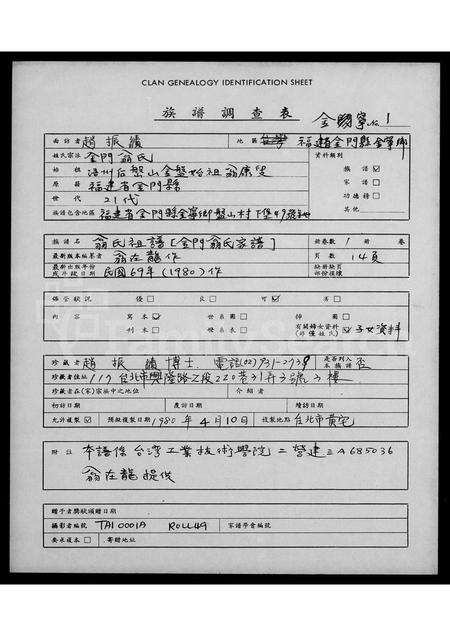 CLAN GENEALOGY IDENTIFICATION SHEET
族譜調查表
金門寧 No. 1
面訪者 趙振績 地區 福建金門縣金寧鄉
姓氏宗法 金門翁氏 資料類別
始祖 浯州后盤山金盤始祖翁康
族譜 ☑
原籍 福建省金門縣 家譜 ☐
世代 21代 功德榜 ☐
族譜包含地區 福建省金門縣金寧鄉盤山村下堡49號
其他
族譜名 翁氏祖譜 [金門翁氏家譜] 冊卷數 1 冊 卷
最新版本編著者 翁在龍作 頁數 14頁
最新出版年份 或手改日期 民國69年 (1980) 作 缺冊缺頁 部份複樣
保管狀況 優 ☐ 良 ☐ 可 ☑ 差 ☐
內容 寫本 ☑ 世系圖 ☐ 掃圖 ☐
刊本 ☐ 世系表 ☐ 有關婦女資料 ☑ 子女資料
珍藏者 趙振績博士 電話(02) 931-2739 是否列入本族譜 否
珍藏者住址 117 台北市興隆路2段220巷31弄3號3樓
珍藏者在(宗)家族中之地位 介紹者
初訪日期 度訪日期 續訪日期
允許複製 ☑ 預擬複製日期 1980年4月10日 複製地點 台北市黃宅
附註 本譜係台灣工業技術學院二營建三A685036
翁在龍提供
贈予者獎狀頒贈日期
攝影者編號 TAI 0001A ROLL49 家譜學會編號
要求複本 ☐ 寄贈地址